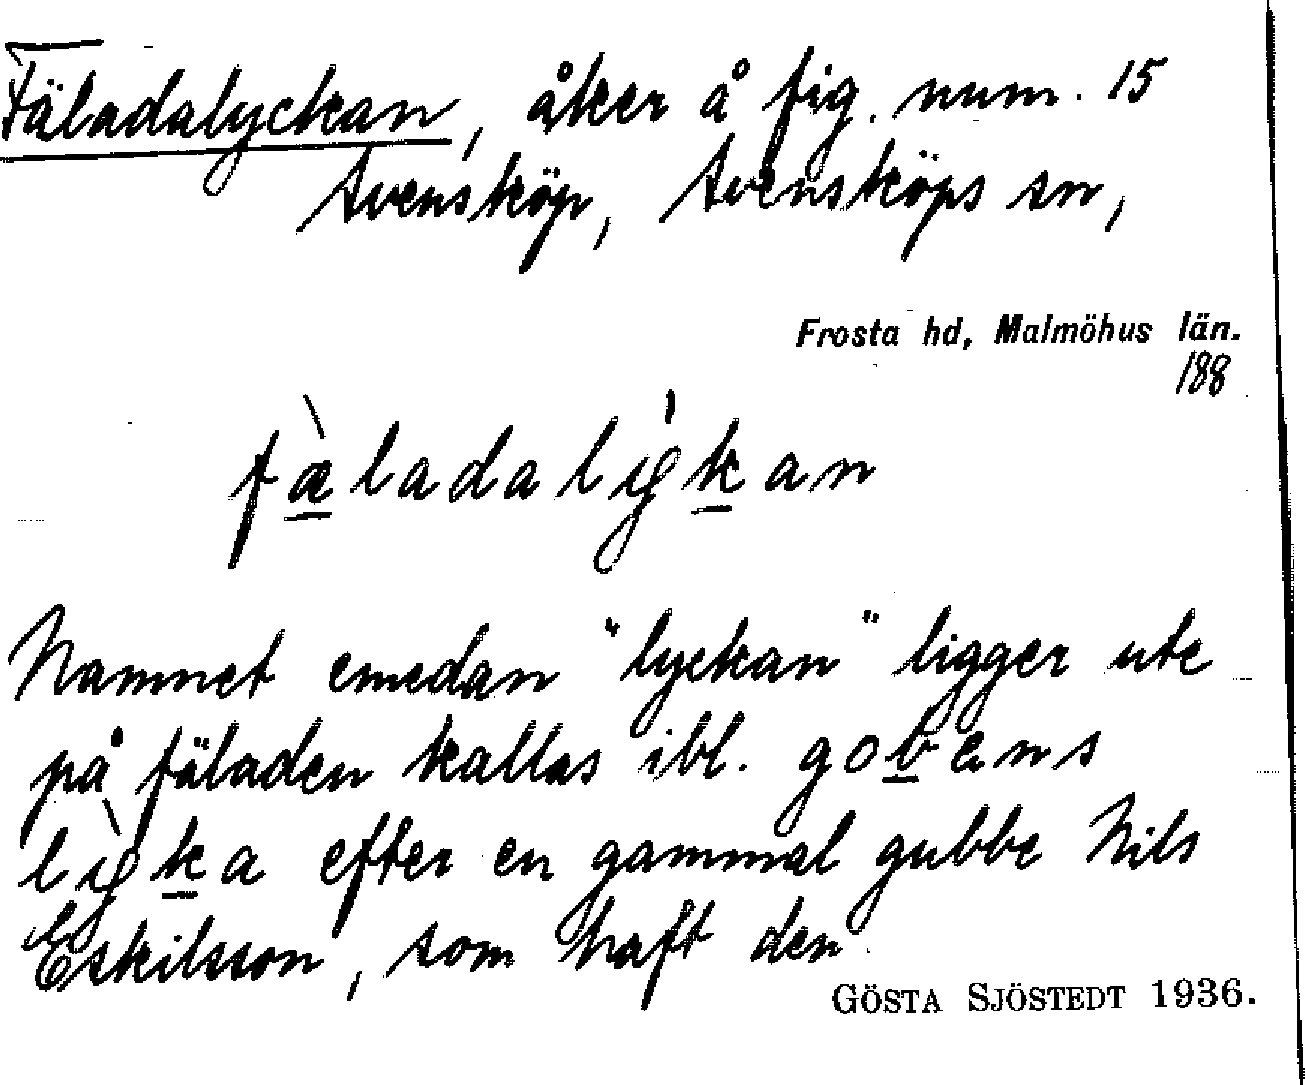 Fäladalyckan, åker å fig. num. 15
Svensköp, Svensköps sn,
Frosta hd, Malmöhus län.
188
fæ̀ladalẏkan
Namnet emedan "lyckan" ligger ute
på fäladen kallas ibl. gobens
lỳka efter en gammal gubbe Nils
Eskilsson, som haft den.
GÖSTA SJÖSTEDT 1936.